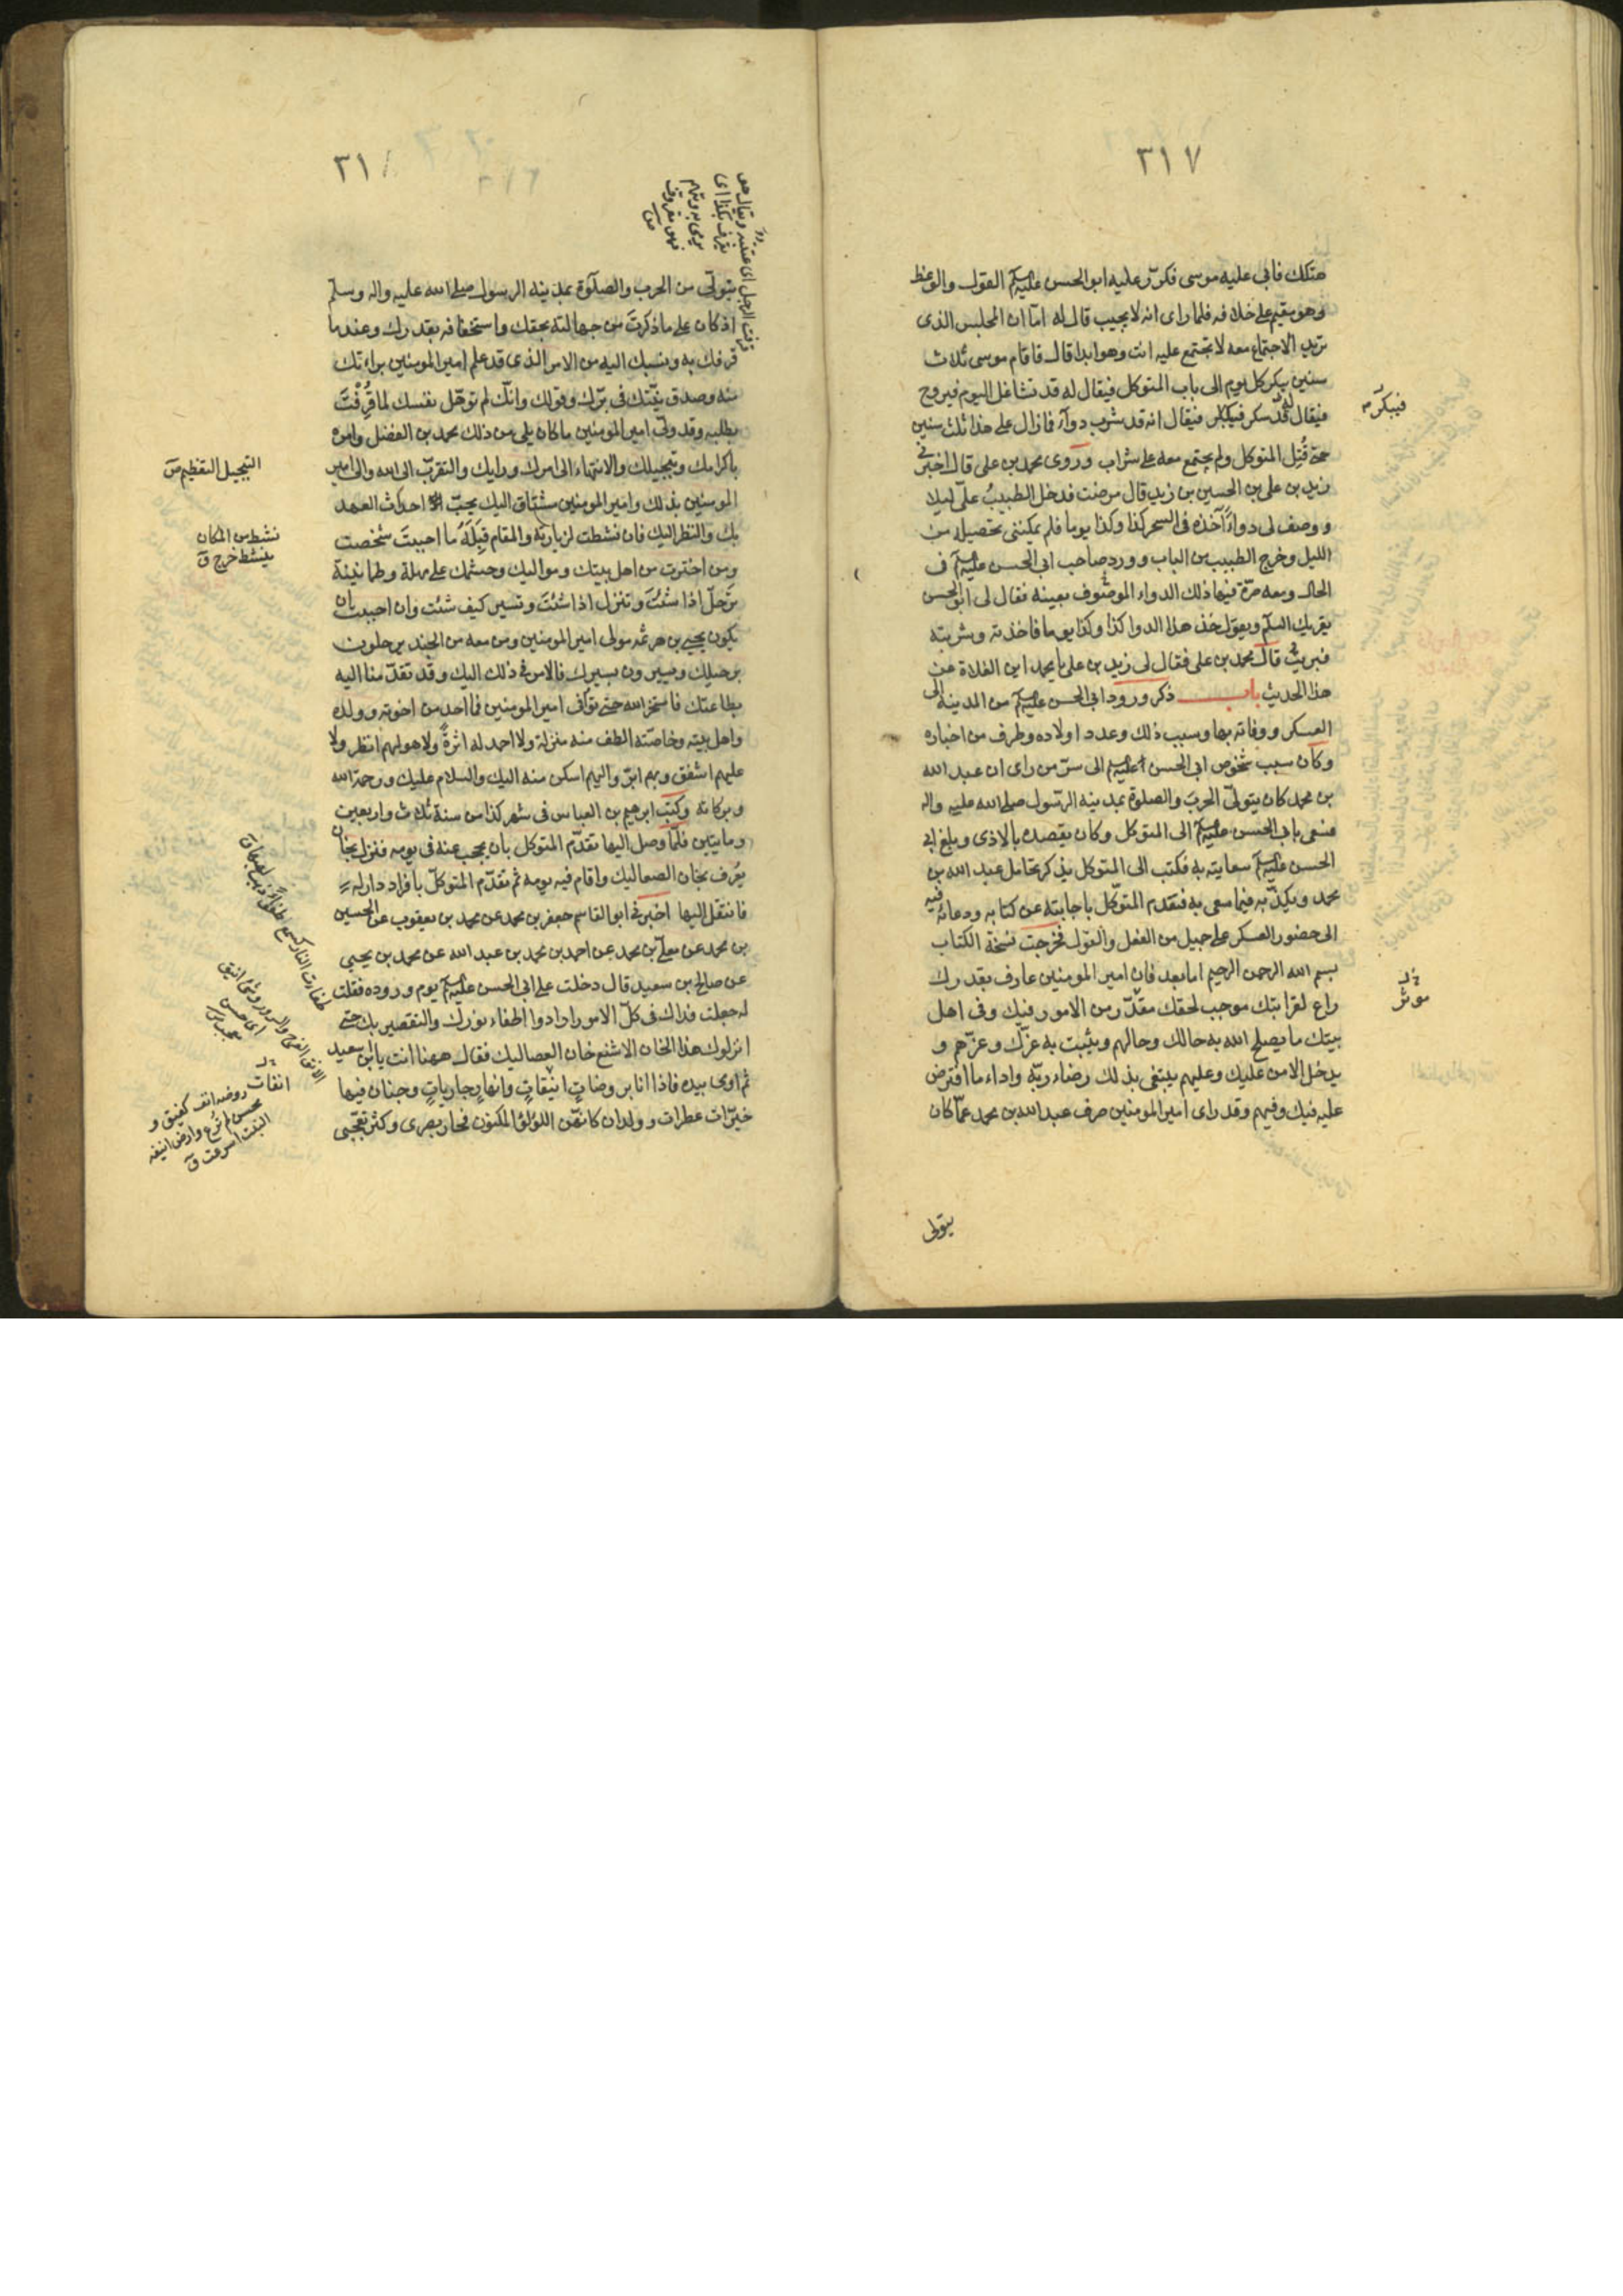 ٣١٧
هتكك فابى عليه موسى فكرّر عليه ابو الحسن عليه السلم القول والوعظ
وهو مقيم على خلافه فلما راى انه لا يجيب قال له امّا ان المجلس الذى
تريد الاجتماع معه لا تجتمع عليه انت وهو ابدا قال فاقام موسى ثلاث
سنين يبكر كل يوم الى باب المتوكل فيقال له قد تشاغل اليوم فيروح
فيقال له قد سكر فيبكر فيقال انه قد شرب دوآء فما زال على هذا ثلث سنين
حتى قُتِل المتوكل ولم يجتمع معه على شراب وروى محمد بن على قال اخبرنى
زيد بن على بن الحسين بن زيد قال مرضت فدخل الطبيبُ علىّ ليلا
ووصف لى دواءً آخذه فى السحر كذا وكذا يوما فلم يمكننى تحصيله من
الليل وخرج الطبيب من الباب وورد صاحب ابى الحسن عليه السلم فى
الحال ومعه صرّة فيها ذلك الدواء الموصوف بعينه فقال لى ابو الحسن
يقريك السلم ويقول خذ هذا الدوا كذا وكذا يوما فاخذته وشربته
فبريت قال محمد بن على فقال لى زيد بن على يا محمد اين الغلاة عن
هذا الحديث باب ذكر ورود ابى الحسن عليه السلم من المدينة الى
العسكر ووفاته بها وسبب ذلك وعدد اولاده وطرف من اخباره
وكان سبب شخوص ابى الحسن عليه السلم الى سرّ من راى ان عبد الله
بن محمد كان يتولىّ الحربَ والصلوة بمدينة الرّسول صلى الله عليه واله
فسعى بابى الحسن عليه السلم الى المتوكل وكان يقصده بالاذى وبلغ ابى
الحسن عليه السلم سعايته به فكتب الى المتوكل يذكر تحامل عبد الله بن
محمد ويكذّبه فيما سعى به فتقدم المتوّكل باجابته عن كتابه ودعائه فيه
الى حضور العسكر على جميل من الفعل والقول فخرجت نسخة الكتاب
بسم الله الرحمن الرحيم اما بعد فان امير المومنين عارف بقدرك
راع لقرابتك موجب لحقك مقدّر من الامور فيك وفى اهل
بيتك ما يصلح الله به حالك وحالهم ويثبت به عزّك وعزّهم و
يدخل الامن عليك وعليهم يبتغى بذلك رضاء ربّه واداء ما افترض
عليه فيك وفيهم وقد راى امير المومنين صرف عبد الله بن محمد عمّا كان
يتولى
فيبكر
موثر
٣١
يتولّى من الحرب والصلوة بمدينة الرسول صلى الله عليه واله وسلم
اذ كان على ما ذكرتَ من جهالته بحقك واستخفافه بقدرك وعندما
قرفك به ونسبك اليه من الامر الذى قد علم امير المومنين براءتك
منه وصدق نيّتك فى برّك وقولك وانّك لم توهّل نفسك لما قُرِفْتَ
بطلبه وقد ولّى امير المومنين ما كان يلى من ذلك محمد بن الفضل وامره
باكرامك وتبجيلك والانتهاء الى امرك ورايك والتقرّب الى الله والى امير
المومنين بذلك وامير المومنين مشتاق اليك يحبّ احداث العهد
بك والنظر اليك فان نشطت لزيارته والمقام قِبَلَهُ ما احببتَ شخصت
ومن اخترت من اهل بيتك ومواليك وحشمك على مهلة وطمانينة
ترحلّ اذا شئتَ وتنزل اذا شئتَ وتسير كيف شئت وان احببت ان
يكون يحيى بن هرثمه مولى امير المومنين ومن معه من الجند يرحلون
برحيلك ويسيرون بسيرك فالامر فى ذلك اليك وقد تقدّمنا اليه
بطاعتك فاستخر الله حتى توافى امير المومنين فما احد من اخوته وولده
واهل بيته وخاصّته الطف منه منزلة ولا احمد له اثرةً ولا هو لهم انظر ولا
عليهم اشفق وبهم ابرّ واليهم اسكن منه اليك والسلام عليك ورحمة الله
وبركاته وكتب ابرهيم بن العباس فى شهر كذا من سنة ثلاث واربعين
ومايتين فلمّا وصل اليها تقدّم المتوكل بان يحجب عنه فى يومه فنزل بخان
يعُرف بخان الصعاليك واقام فيه يومه ثم تقدّم المتوكلّ بافراد دار له
فانتقل اليها اخبرنى ابو القاسم جعفر بن محمد عن محمد بن يعقوب عن الحسين
بن محمد عن معلّى بن محمد عن احمد بن محمد بن عبد الله عن محمد بن يحيى
عن صالح بن سعيد قال دخلت على ابى الحسن عليه السلم يوم وروده فقلت
له جعلت فداك فى كلّ الامور ارادوا اطفاء نورك والتقصير بك حتى
انزلوك هذا الخان الاشنع خان الصعاليك فقال ههنا انت يا ابن سعيد
ثم اومى بيده فاذا انا بروضاتٍ انيقاتٍ وانهارٍ جارياتٍ وجنان فيها
خيرّات عطرات وولدان كانهّن اللؤلؤ المكنون فحار بصرى وكثر تعجبى
قرفت الرجل اى عتبته ويقال هو
يقرف بكذا اى
يرمى به ويتهم
فهو مقروف
ص
التبجيل التعظيم ص
نشط من المكان
ينشط خرج ق
انقات روضه انف كعنق و
محسن لم ترع وارض انيفه
النبت اسرعت ق